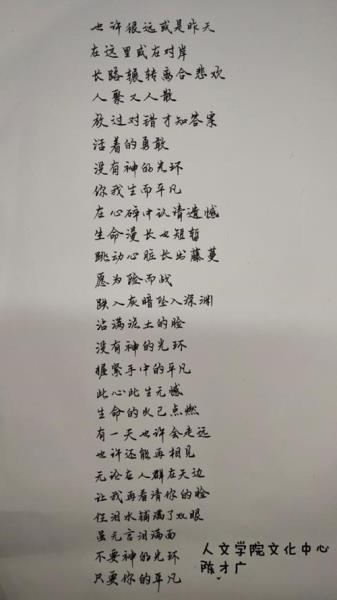 也许很远或是昨天
在这里或在对岸
长路辗转离合悲欢
人聚又人散
放过对错才知答案
活着的勇敢
没有神的光环
你我生而平凡
在心碎中认清遗憾
生命漫长也短暂
跳动心脏长出藤蔓
愿为险而战
跌入灰暗坠入深渊
沾满泥土的脸
没有神的光环
握紧手中的平凡
此心此生无憾
生命的火已点燃
有一天也许会走远
也许还能再相见
无论在人群在天边
让我再看清你的脸
任泪水铺满了双眼
虽无言泪满面
不要神的光环
只要你的平凡
人文学院文化中心
陈才广